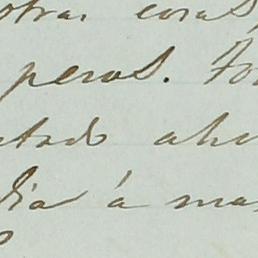 otras cosas
peros. Fo
stado aho
dia á ma